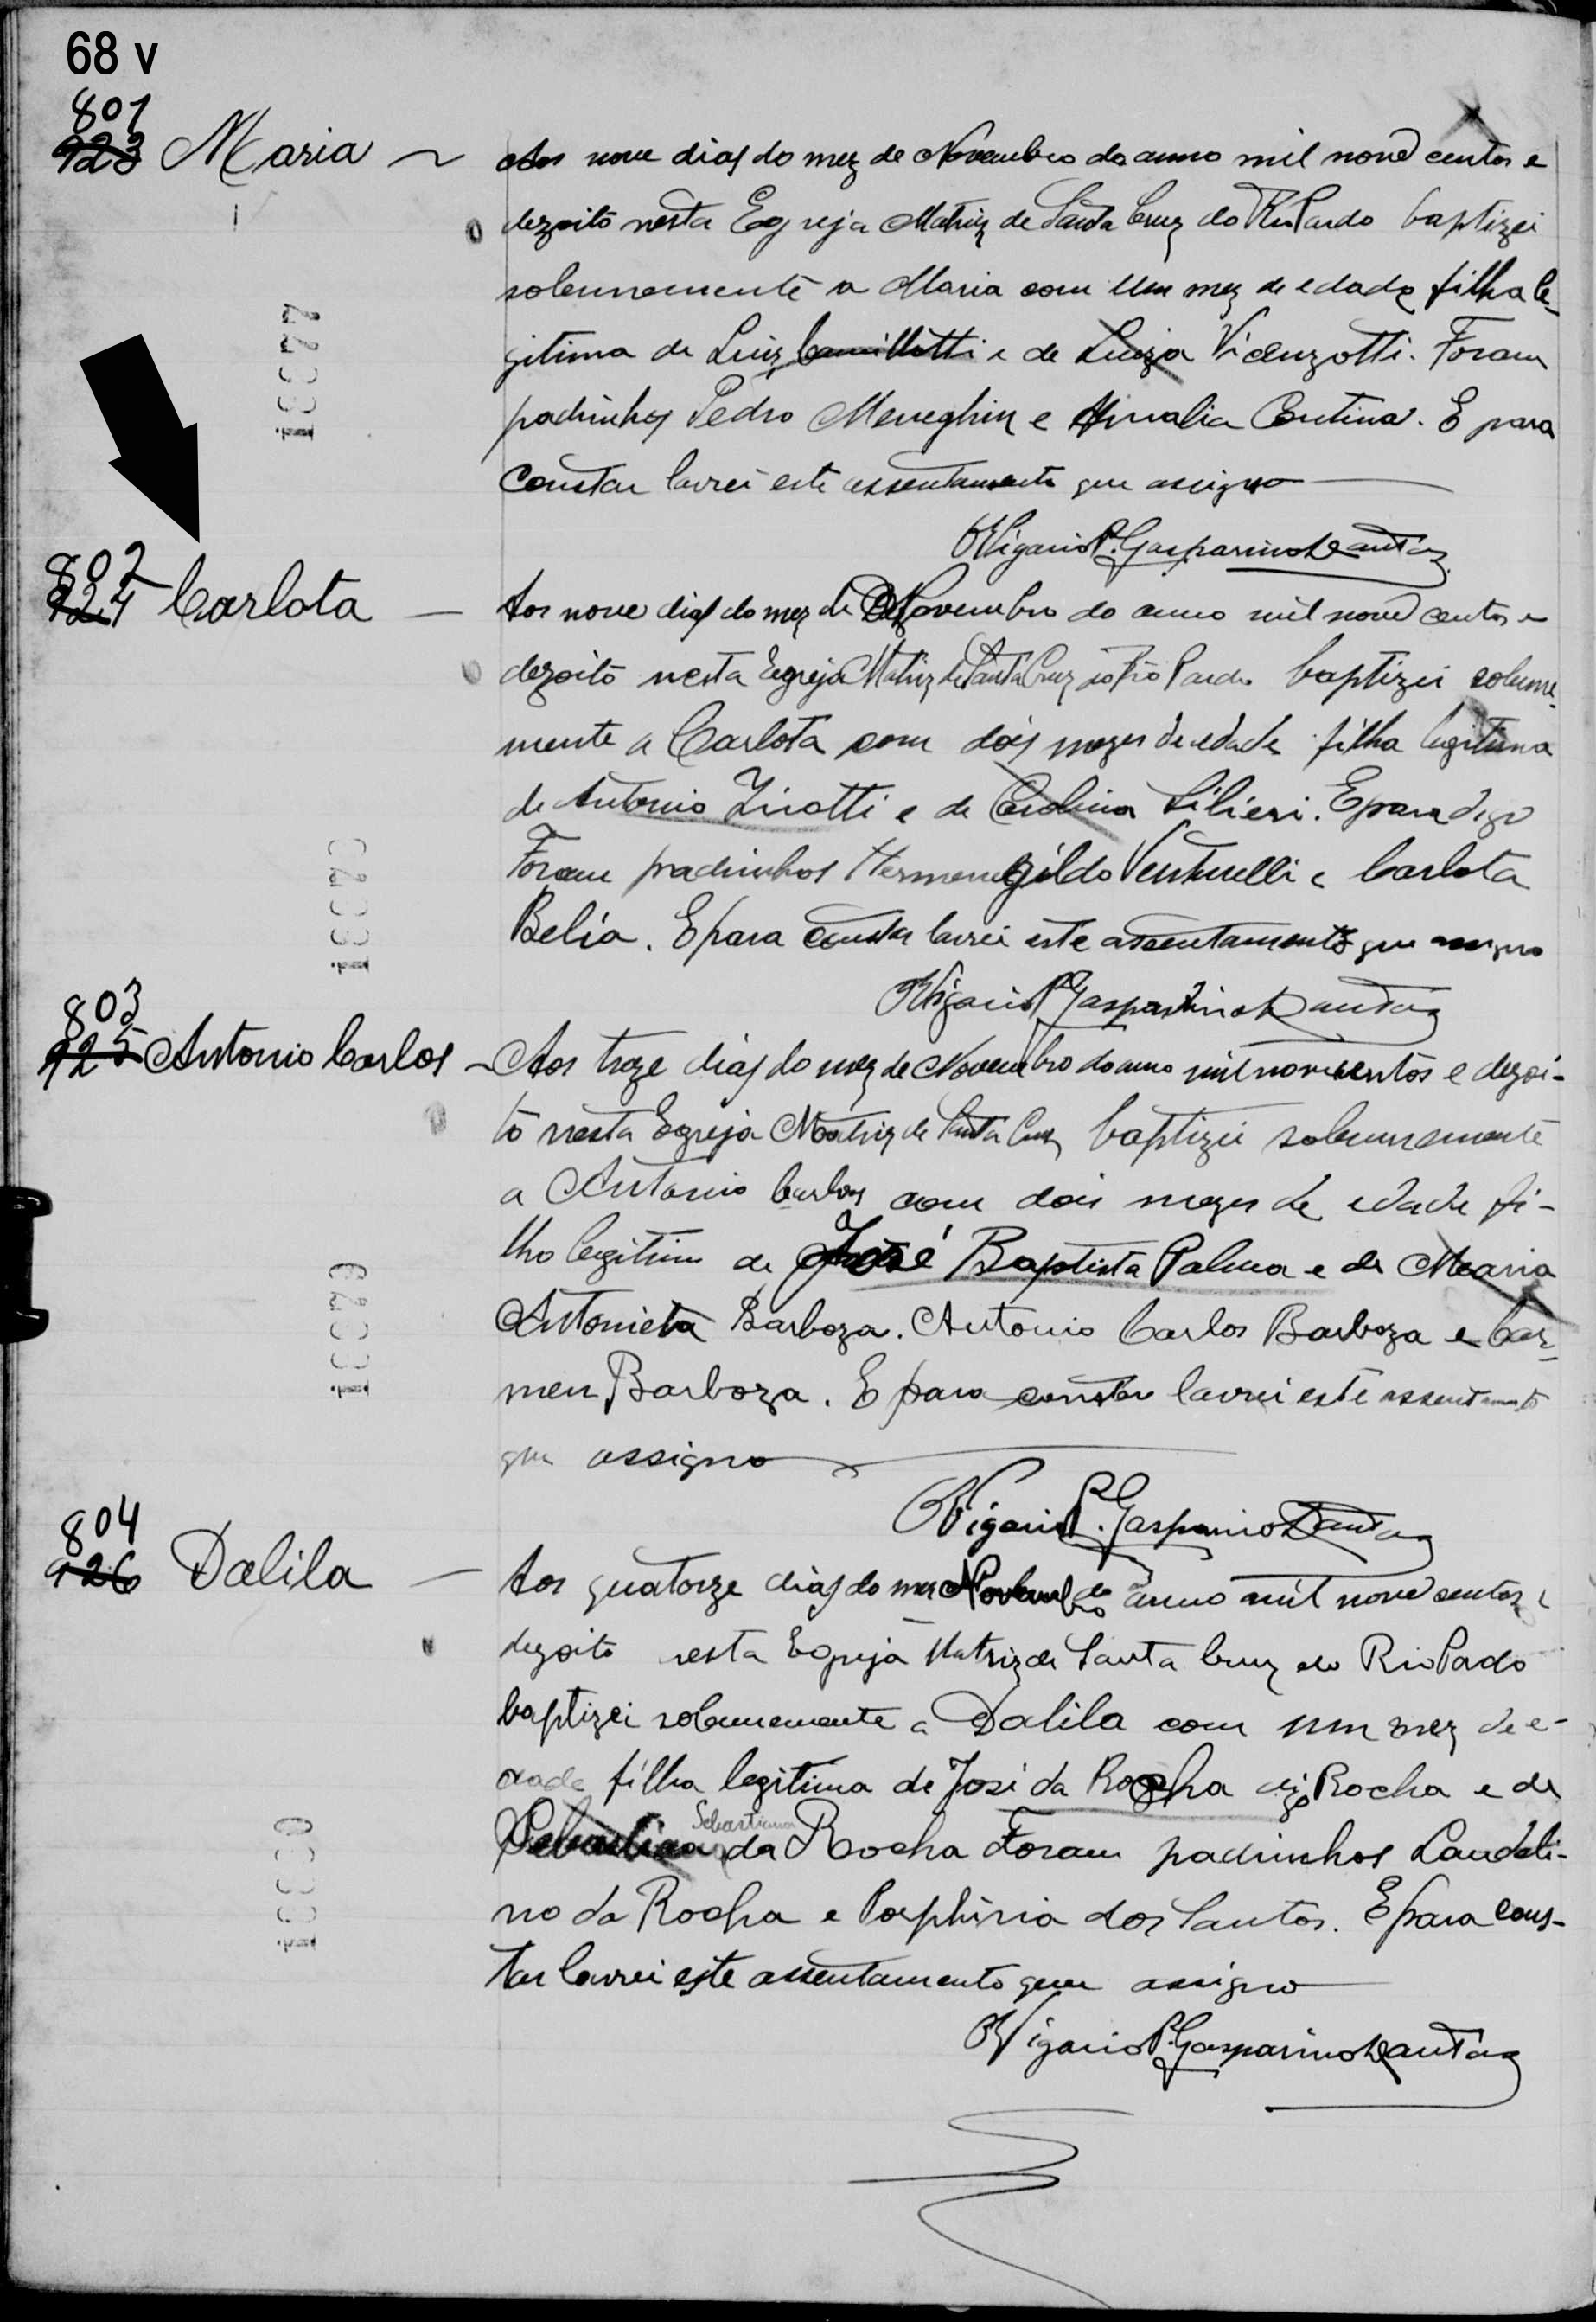 68 v
801
923 Maria ~ Aos nove dias do mez de Novembro do anno mil nove centos e
dezoito nesta Egreja Matriz de Santa Cruz do Rio Pardo baptizei
solennemente a Maria com um mez de edade filha le-
gitima de Luiz Camillotti e de Luiza Vicenzotti. Foram
padrinhos Pedro Meneghin e Amalia Contina. E para
constar lavrei este assentamento que assigno
O Vigario P. Gasparino Dantas
802
924 Carlota — Aos nove dias do mez de Novembro do anno mil nove centos e
dezoito nesta Egreja Matriz de Santa Cruz do Rio Pardo baptizei solenne-
mente a Carlota com dois mezes de edade filha legitima
de Antonio Zirotti e de Carolina Silieri. E para digo
Foram padrinhos Hermenegildo Venturelli e Carlota
Belia. E para constar lavrei este assentamento que assigno
O Vigario P. Gasparino Dantas
803
925 Antonio Carlos — Aos treze dias do mez de Novembro do anno mil novecentos e dezoi-
to nesta Egreja Matriz de Santa Cruz baptizei solennemente
a Antonio Carlos com dois mezes de edade fi-
lho legitimo de José Baptista Palma e de Maria
Antonieta Barboza. Antonio Carlos Barboza e Car-
men Barboza. E para constar lavrei este assentamento
que assigno
O Vigario P. Gasparino Dantas
804
926 Dalila — Aos quatorze dias do mez Novembro do anno mil nove centos e
dezoito nesta Egreja Matriz de Santa Cruz do Rio Pardo
baptizei solennemente a Dalila com um mez de e-
dade filha legitima de José da Rocha digo Rocha e de
Sebastiana
Sebastiana da Rocha Foram padrinhos Laudeli-
no da Rocha e Porphiria dos Santos. E para cons-
tar lavrei este assentamento que assigno
O Vigario P. Gasparino Dantas